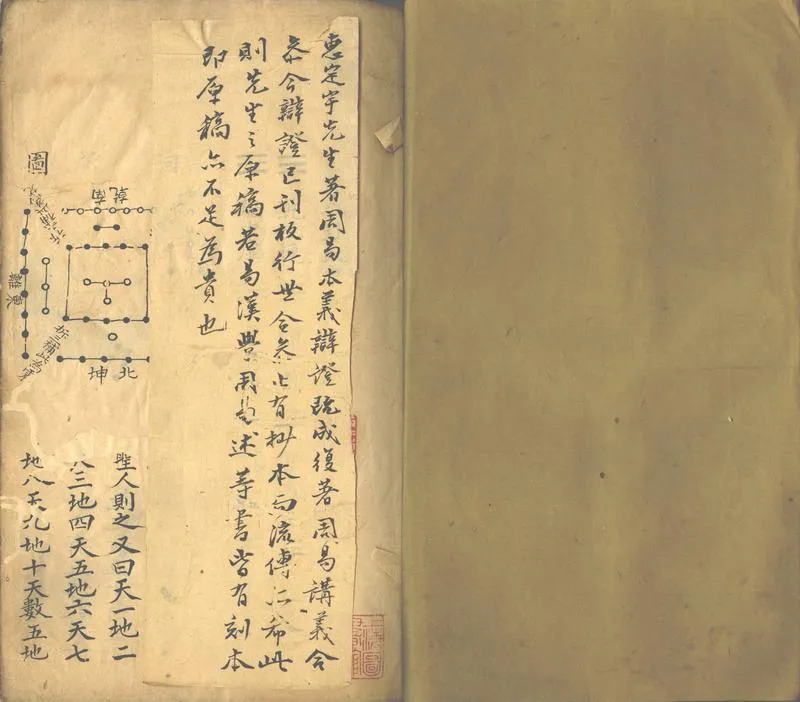 惠定宇先生著周易本義辯證既成復著周易講義合
叅今辯證已刊板行世合叅止有抄本而流傳亦希此
則先生之原稿若易漢學周易述等書皆有刻本
即原稿亦不足為貴也
圖
乾南
離東
坤北
聖人則之又曰天一地二
天三地四天五地六天七
地八天九地十天數五地